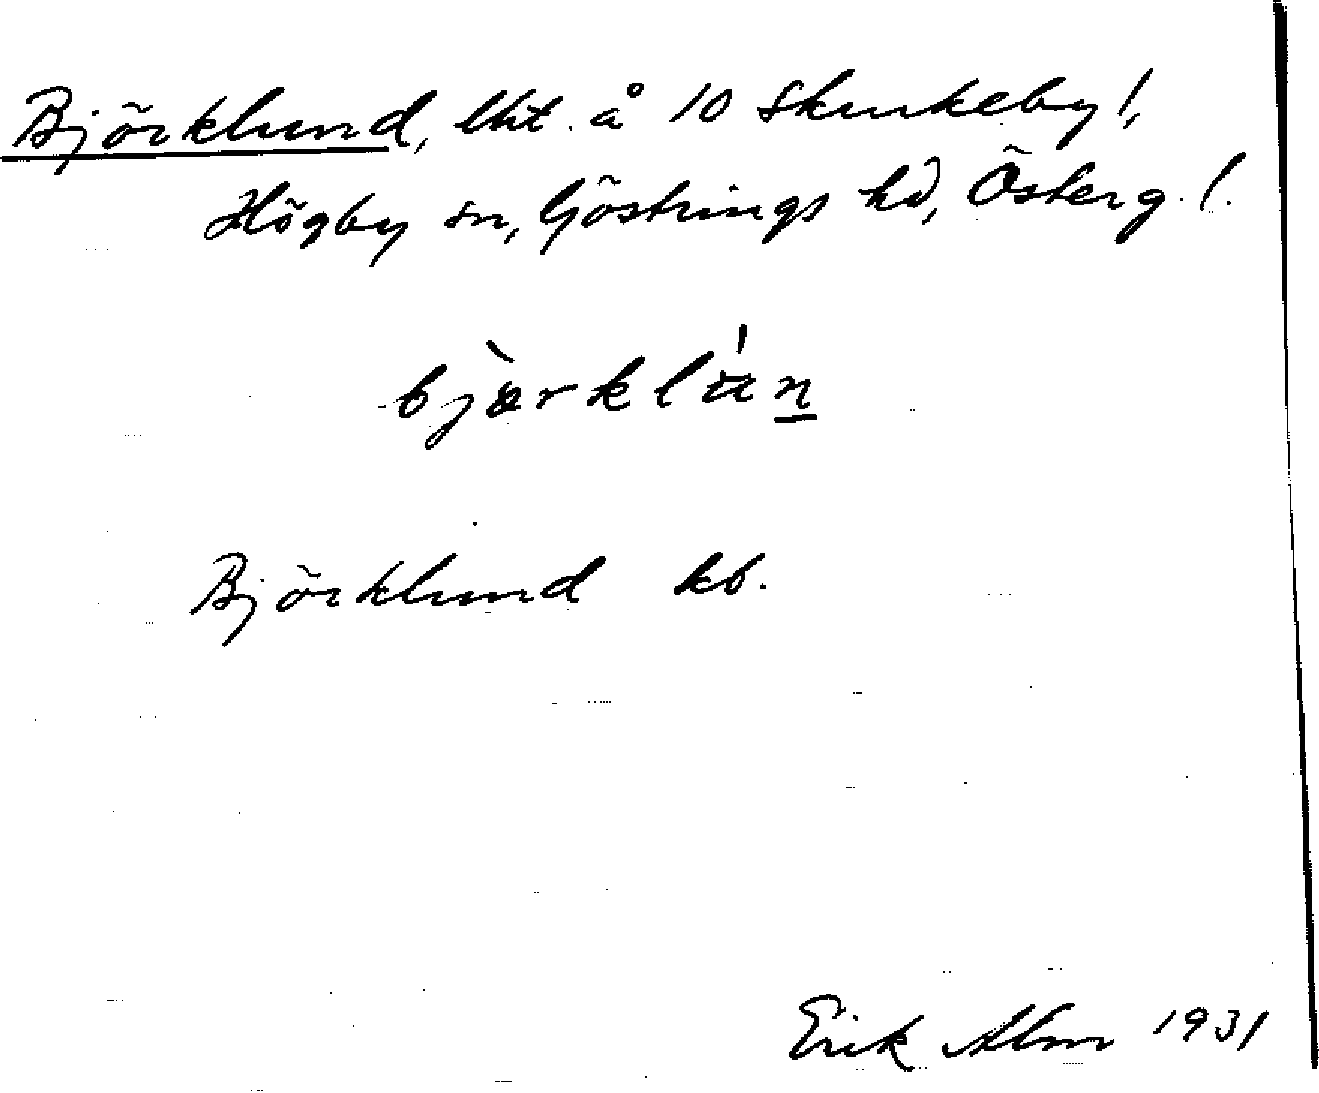 Björklund, lht. å 10 Skurkeby!,
Högby sn, Göstrings hd, Österg. l.
bjærklun
Björklund kb.
Erik Alm 1931